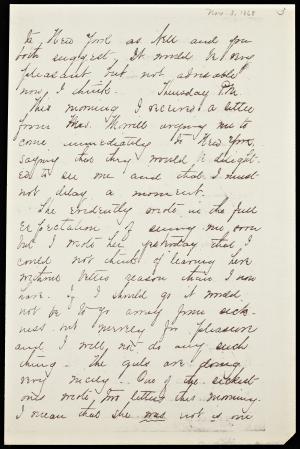 Nov. 3, 1868 3
to New York as Nell and you
both suggest, It would be very
pleasant but not advisable
now, I think. Thursday P.M.
This morning I received a letter
from Mrs. Morrell urging me to
come immediately to New York,
saying that they would be delight-
ed to see me and that I must
not delay a moment.
She evidently wrote in the full
expectation of seeing me soon
but I wrote her yesterday that I
could not think of leaving here
without better reason than I now
have. If I should go it would
not be to go away from sick-
ness but merely for pleasure
and I will not do any such
thing. The girls are doing
very nicely. One of the sickest
ones wrote two letters this morning.
I mean that she was not is one